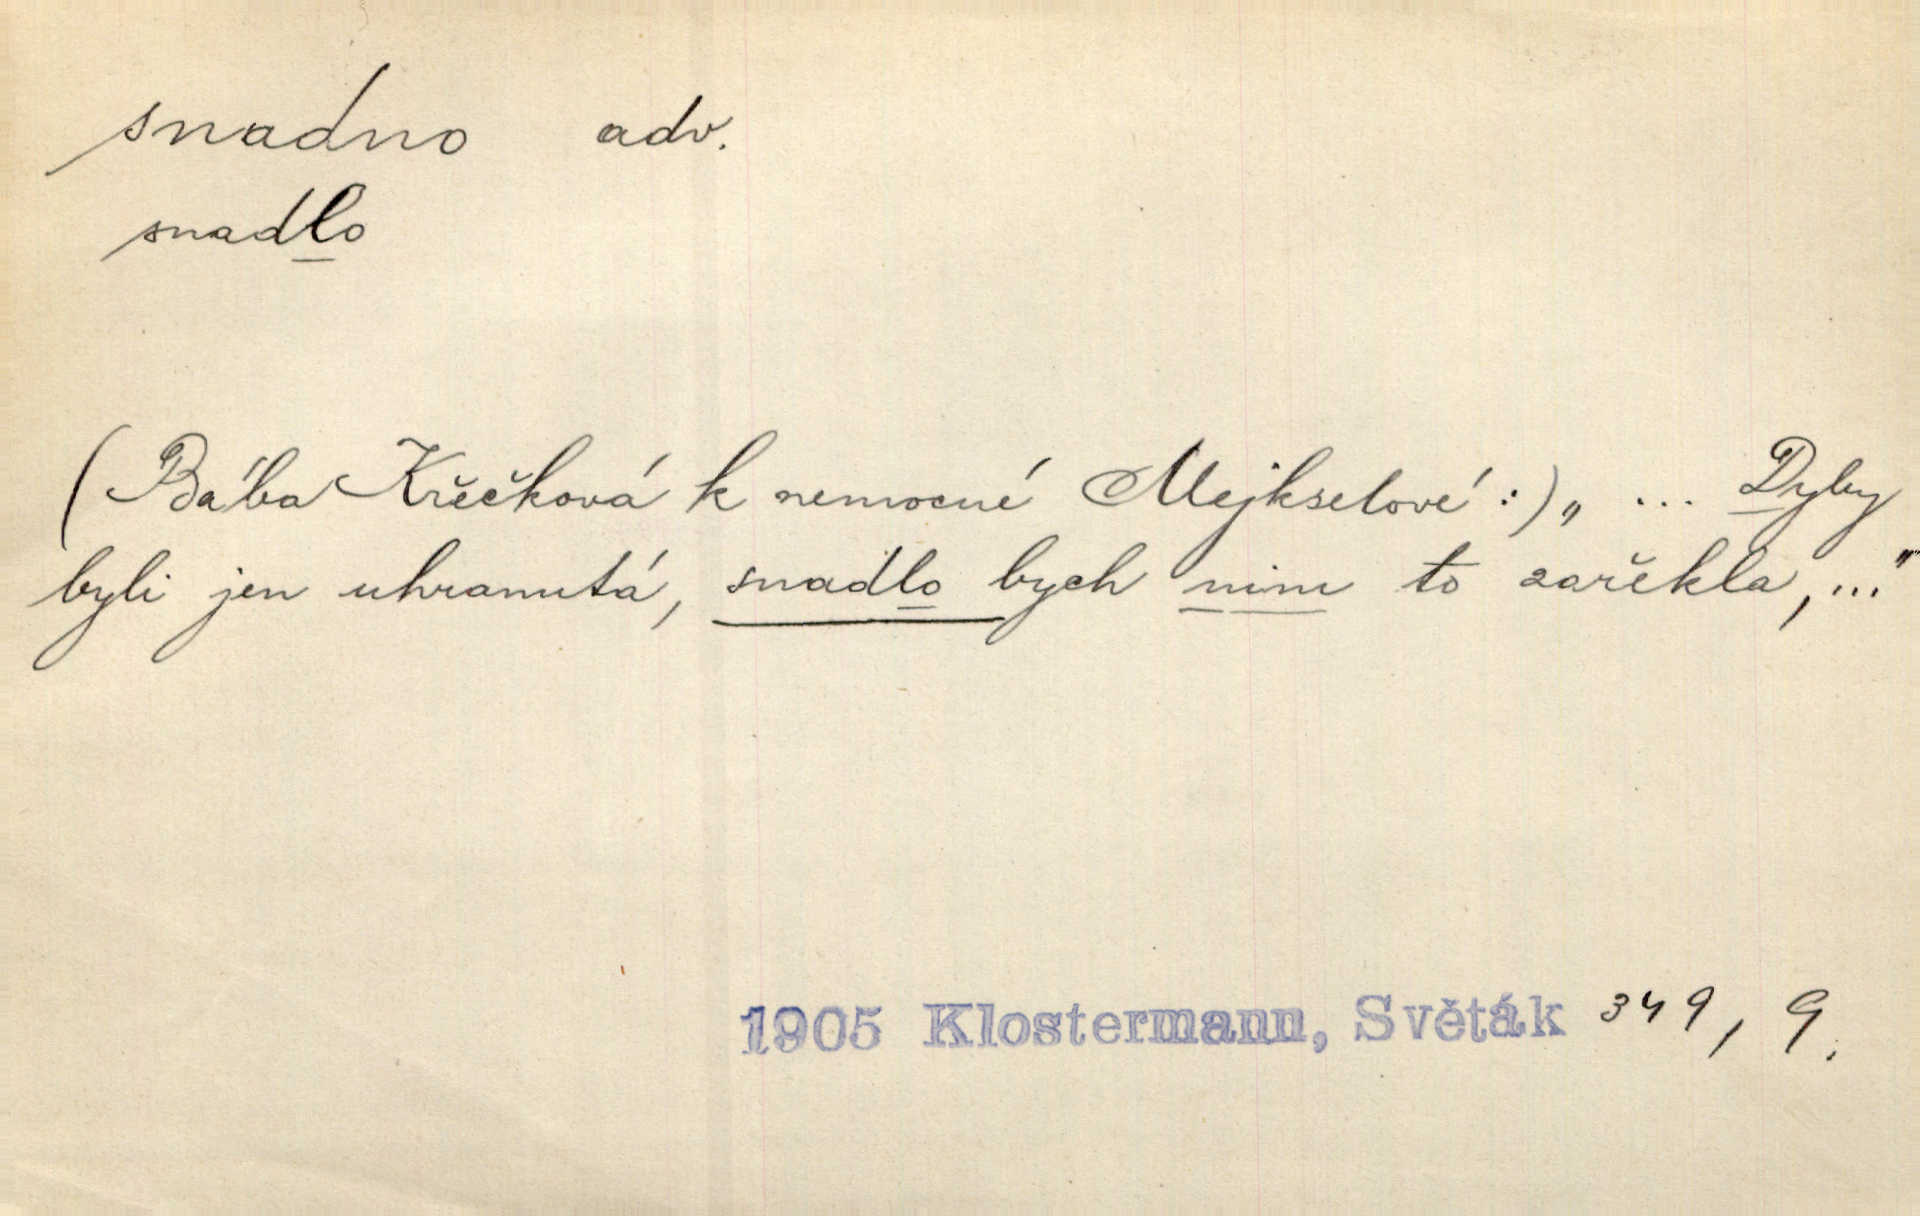 snadno adv.
snadlo
(Bába Křečková k nemocné Mejkselové:) „ ... Dyby
byli jen uhranutá, snadlo bych nim to zařekla, ..."
1905 Klostermann, Světák 349, 9.